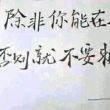 除非你能在
否则就不要